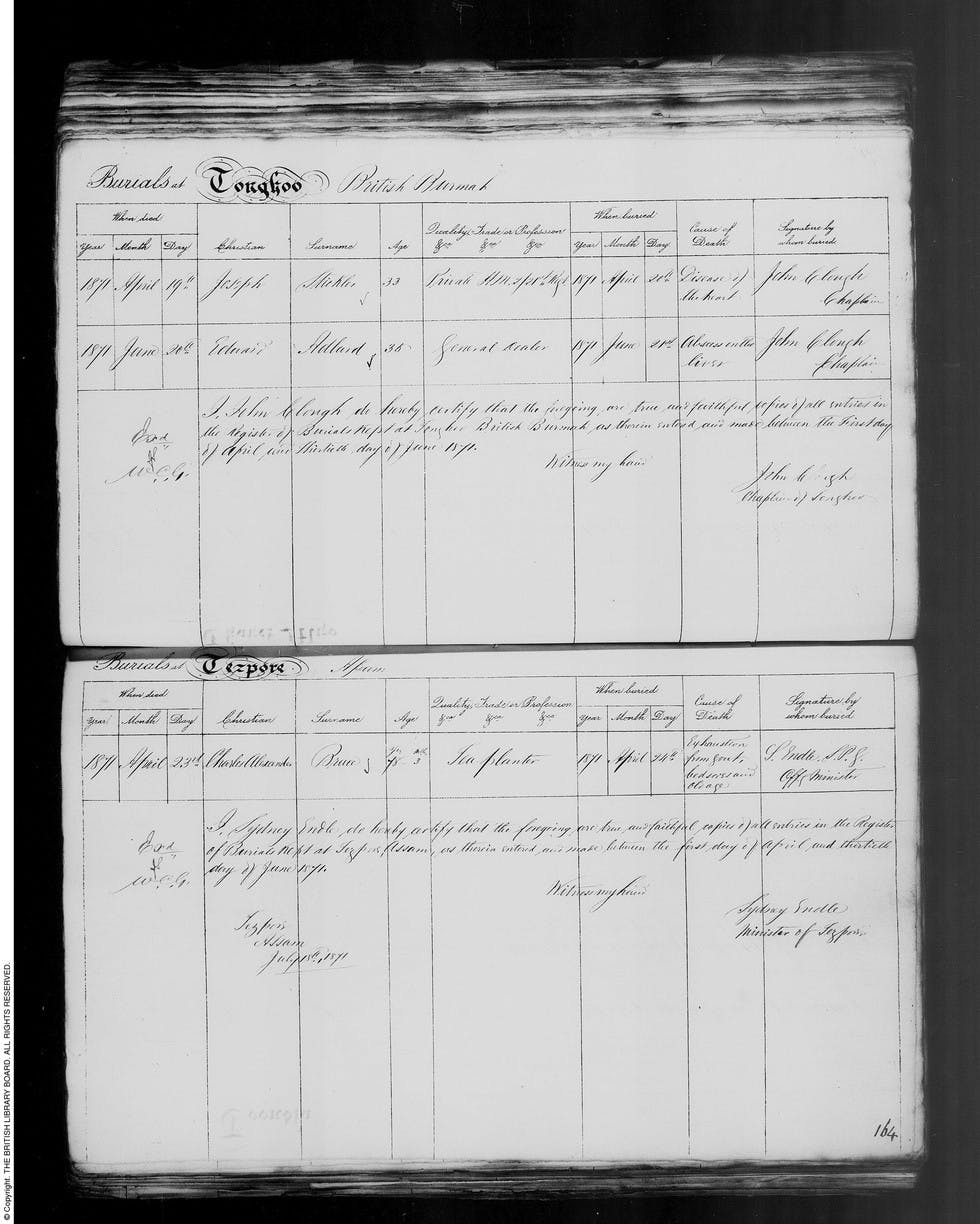 Burials at Tonghoo British Burmah
When died
When buried
Year Month Day Christian Surname Age Quality, Trade or Profession &ca &ca &ca Year Month Day Cause of Death Signature by whom buried
1871 April 19th Joseph 33 Private H.M. Regt 1871 April 20th Disease of the heart John Clough Chaplain
1871 June 20th Edward Adlard 35 General Dealer 1871 June 21st Abscess on the liver John Clough Chaplain
I, John Clough do hereby certify that the foregoing, are true and faithful copies of all entries in
the Register of Burials kept at Tonghoo British Burmah as therein entered and made between the First day
of April and thirtieth day of June 1871.
Witness my hand
Exd
W.C.G.
John Clough
Chaplain of Tonghoo
Burials at Tezpore Assam
When died
When buried
Year Month Day Christian Surname Age Quality, Trade or Profession &ca &ca &ca Year Month Day Cause of Death Signature by whom buried
1871 April 23rd Charles Alexander Bruce 78 3 Tea planter 1871 April 24th Exhaustion from gout, bedsores and old age S. Endle, S.P.G. Offg Minister
I, Sydney Endle do hereby certify that the foregoing are true and faithful copies of all entries in the Register
of Burials kept at Tezpore, Assam, as therein entered and made between the first day of April and thirtieth
day of June 1871.
Witness my hand
Exd
W.C.G.
Sydney Endle
Minister of Tezpore
Tezpore
Assam
July 18th, 1871
164
© Copyright. THE BRITISH LIBRARY BOARD. ALL RIGHTS RESERVED.